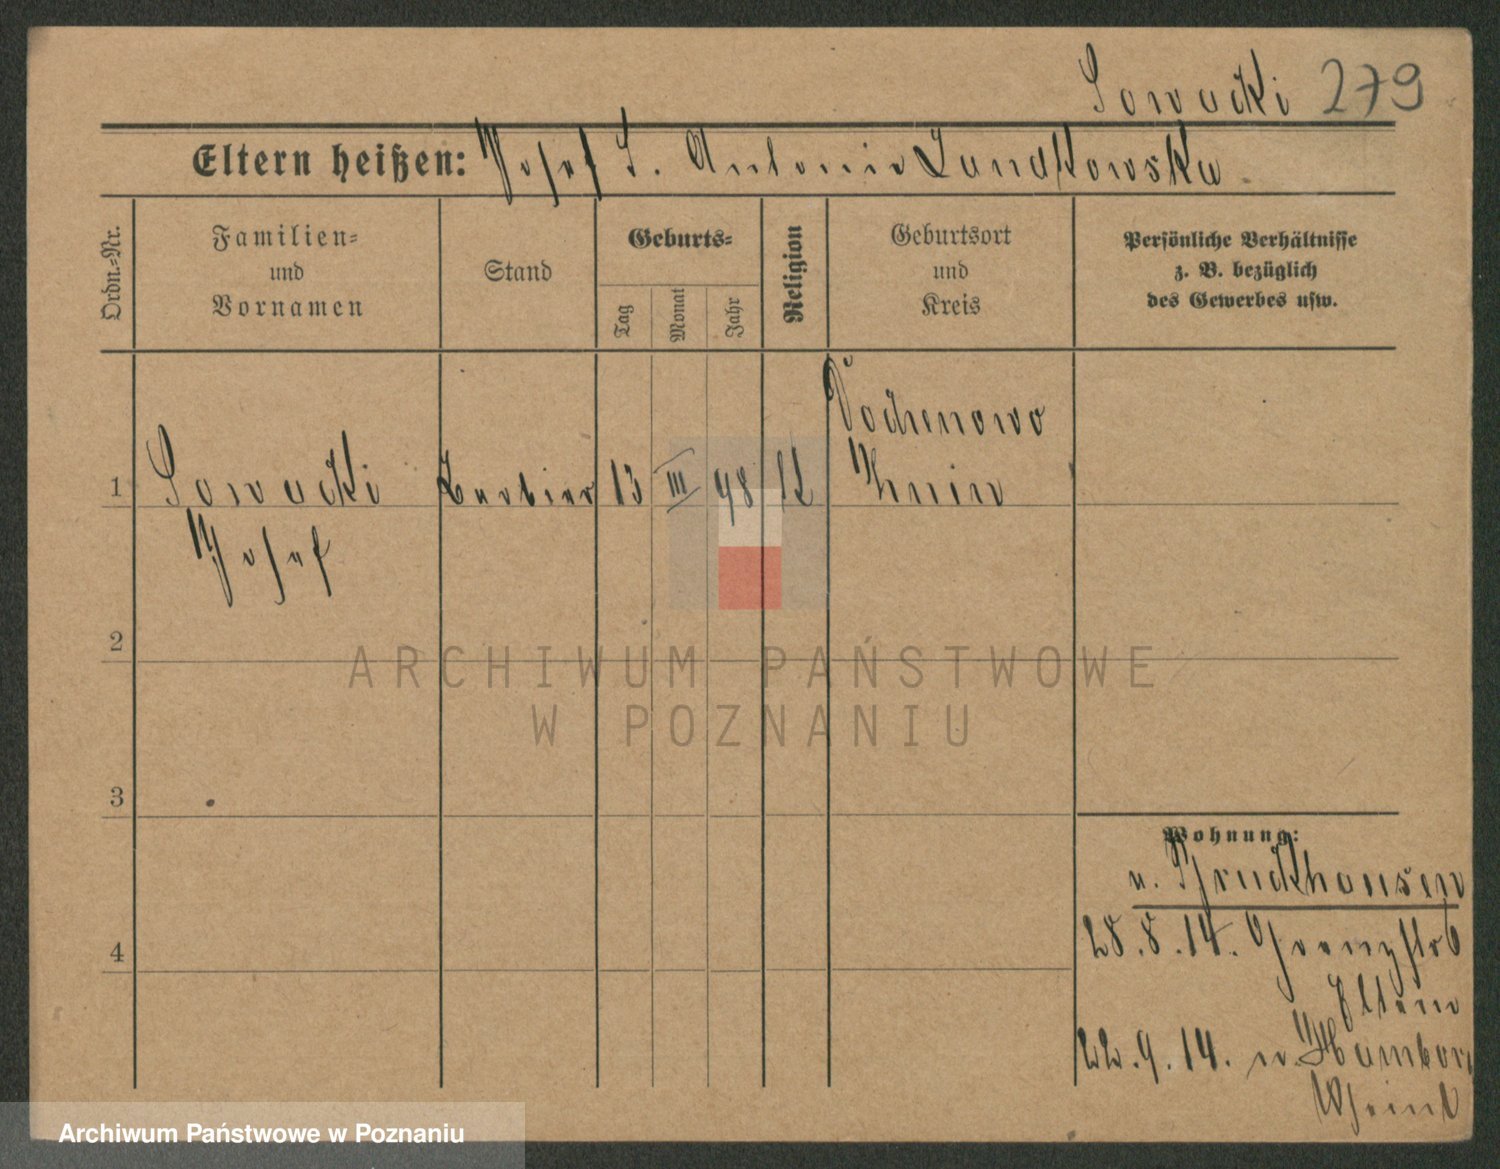 Sowacki 279
Eltern heißen: Josef S. Antonie Landkowska
Ordn.-Nr.
Familien-
und
Vornamen
Stand
Geburts-
Tag
Monat
Jahr
Religion
Geburtsort
und
Kreis
Persönliche Verhältnisse
z. B. bezüglich
des Gewerbes usw.
1 Sowacki Barbier 13 III 98 k
Josef
Znin
2
3
4
ARCHIWUM PAŃSTWOWE
W POZNANIU
Wohnung:
v. Bruckhausen
28.8.14. Grenzstr 6
Eltern
22.9.14. n. Hamborn
Rheinl
Archiwum Państwowe w Poznaniu